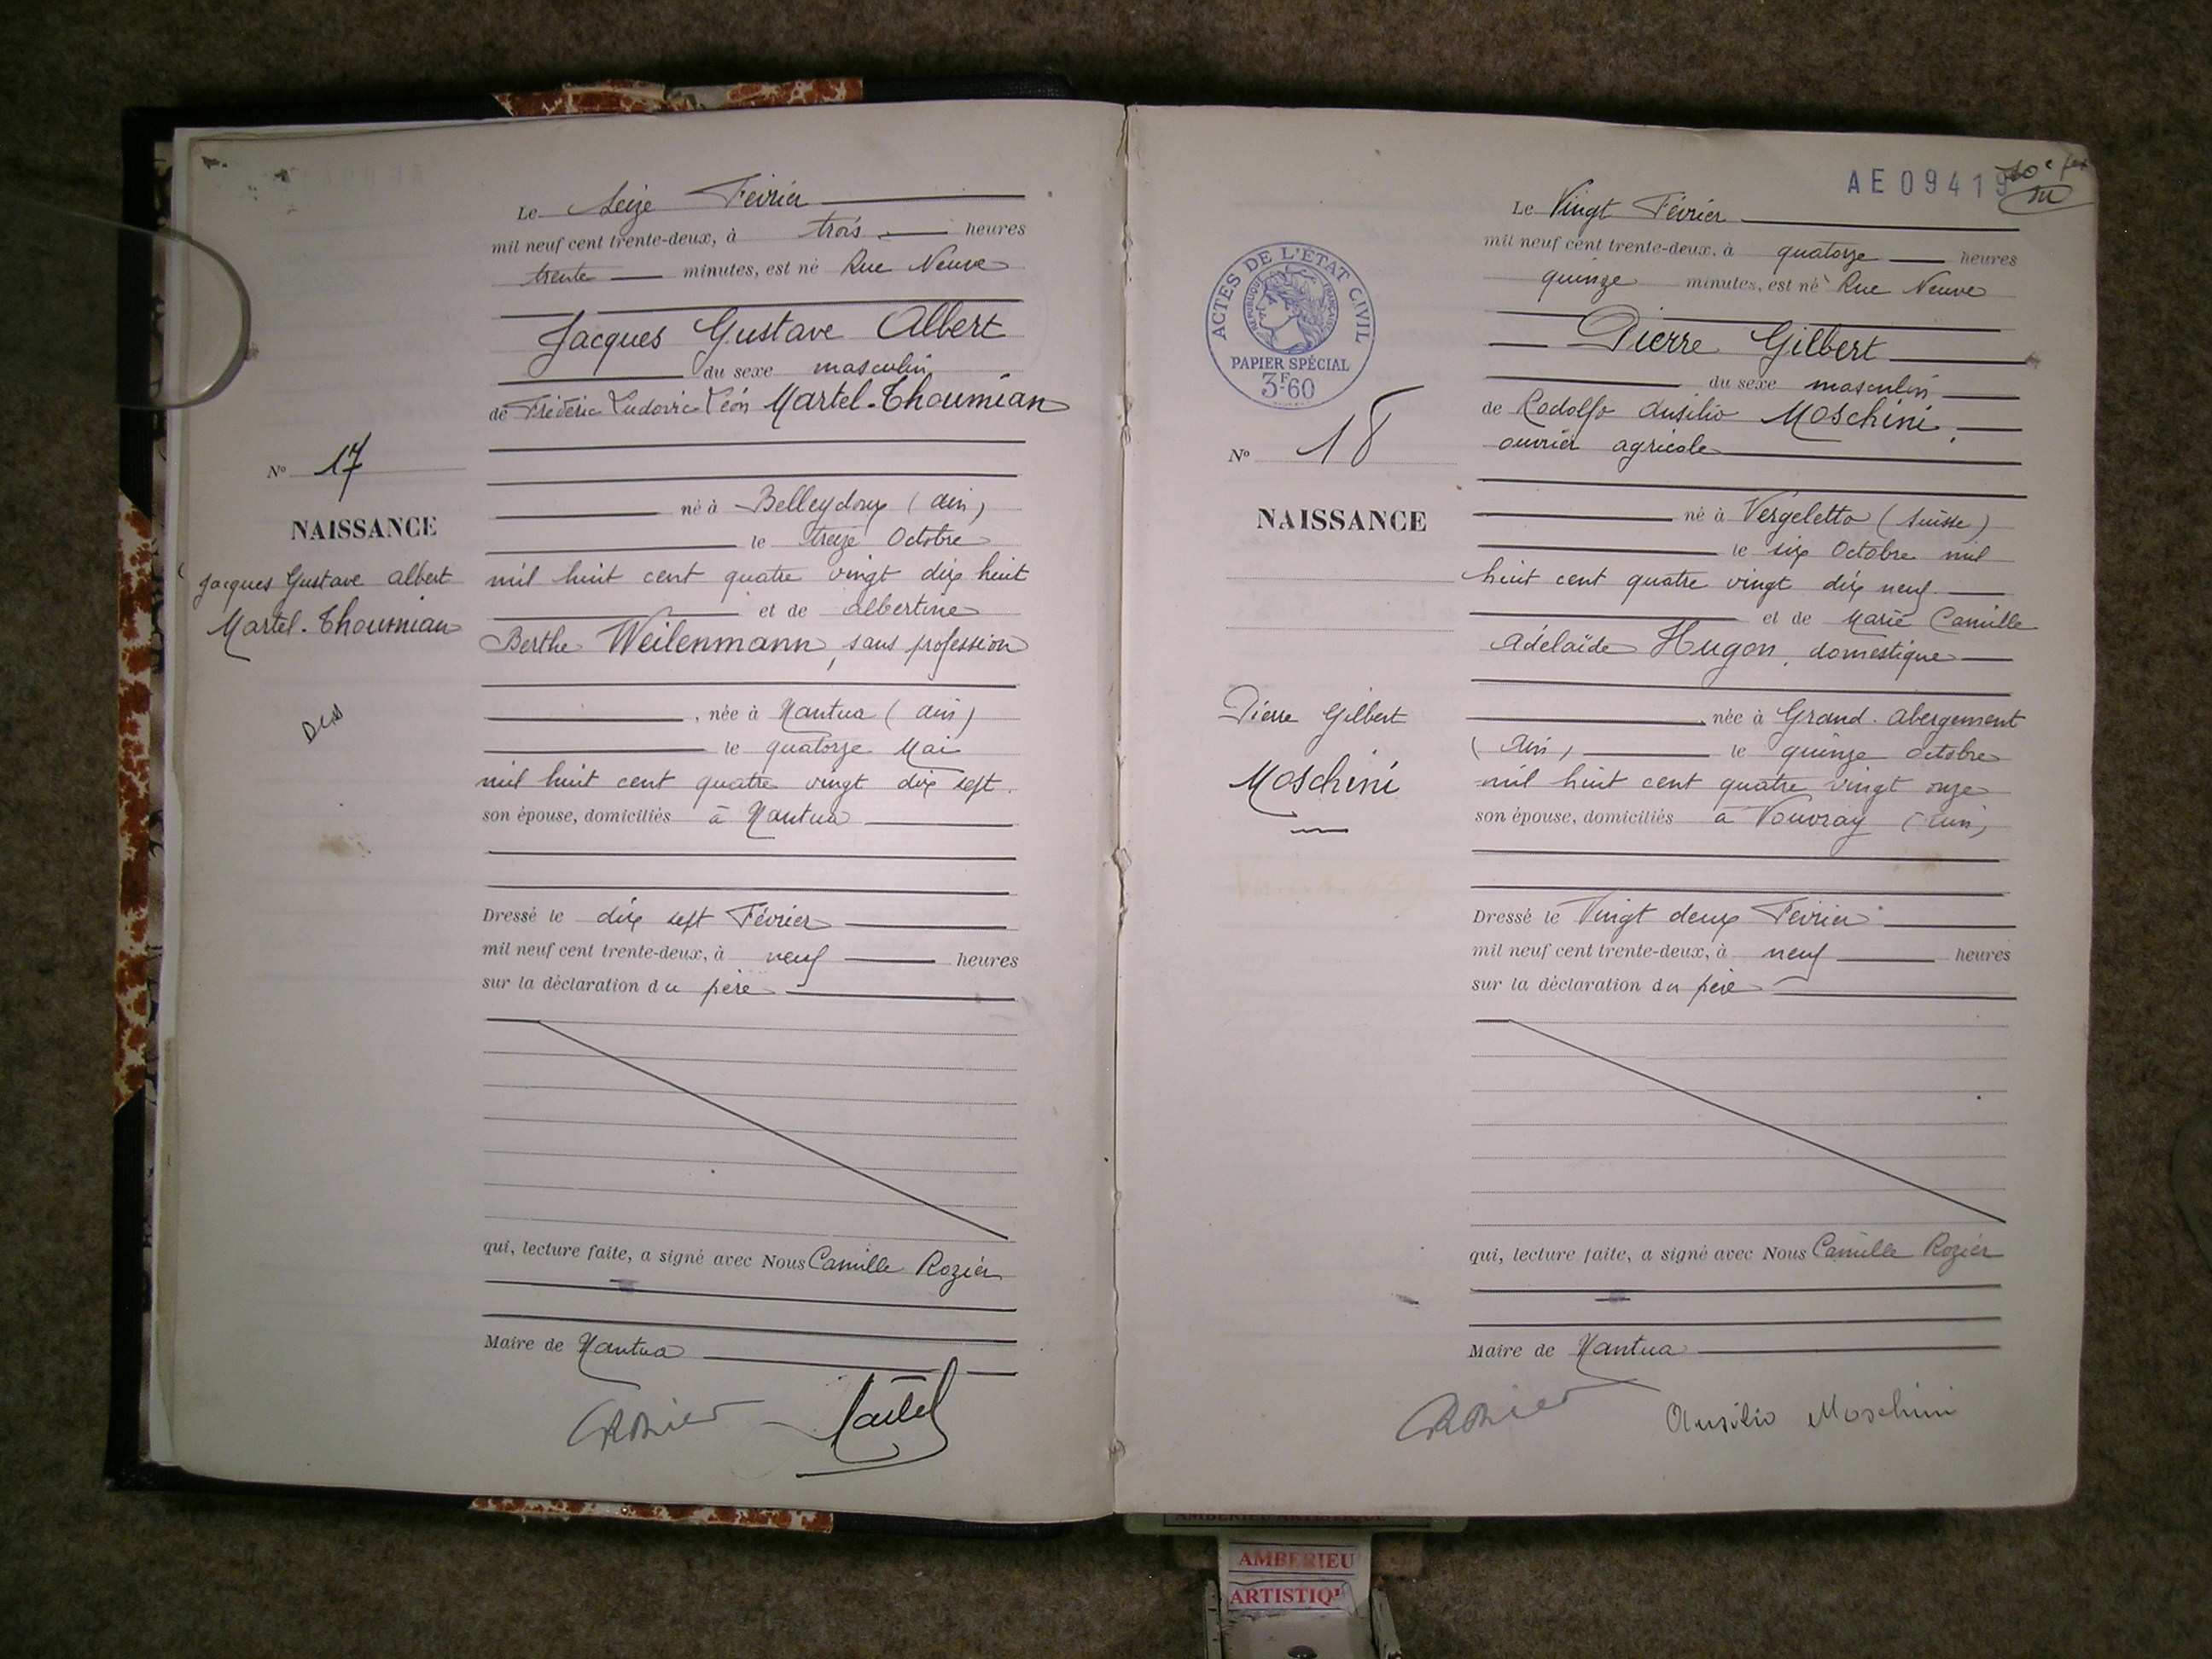 Le Seize Février
mil neuf cent trente-deux, à trois heures
trente minutes, est né Rue Neuve
Jacques Gustave Albert
du sexe masculin
de Frédéric Ludovic Léon Martel-Thoumian
né à Belleydoux (Ain)
le treize Octobre
mil huit cent quatre vingt dix huit
et de Albertine
Berthe Weilenmann, sans profession
, née à Nantua (Ain)
le quatorze Mai
mil huit cent quatre vingt dix sept
son épouse, domiciliés à Nantua
Dressé le dix sept Février
mil neuf cent trente-deux, à neuf heures
sur la déclaration du père
qui, lecture faite, a signé avec Nous Camille Rozier
Maire de Nantua
Martel
No 17
NAISSANCE
Jacques Gustave Albert
Martel-Thoumian
AE09419
Le Vingt Février
mil neuf cent trente-deux, à quatorze heures
quinze minutes, est né Rue Neuve
Pierre Gilbert
du sexe masculin
de Rodolfo Ausilio Moschini,
ouvrier agricole
né à Vergeletto (Suisse)
le six Octobre mil
huit cent quatre vingt dix neuf
et de Marie Camille
Adélaïde Hugon, domestique
, née à Grand-Abergement
(Ain) le quinze Octobre
mil huit cent quatre vingt onze
son épouse, domiciliés à Vouvray (Ain)
Dressé le Vingt deux Février
mil neuf cent trente-deux, à neuf heures
sur la déclaration du père
qui, lecture faite, a signé avec Nous Camille Rozier
Maire de Nantua
Ausilio Moschini
ACTES DE L'ÉTAT CIVIL
RÉPUBLIQUE FRANÇAISE
PAPIER SPÉCIAL
3F60
No 18
NAISSANCE
Pierre Gilbert
Moschini
AMBERIEU ARTISTIQUE
AMBERIEU
ARTISTIQ